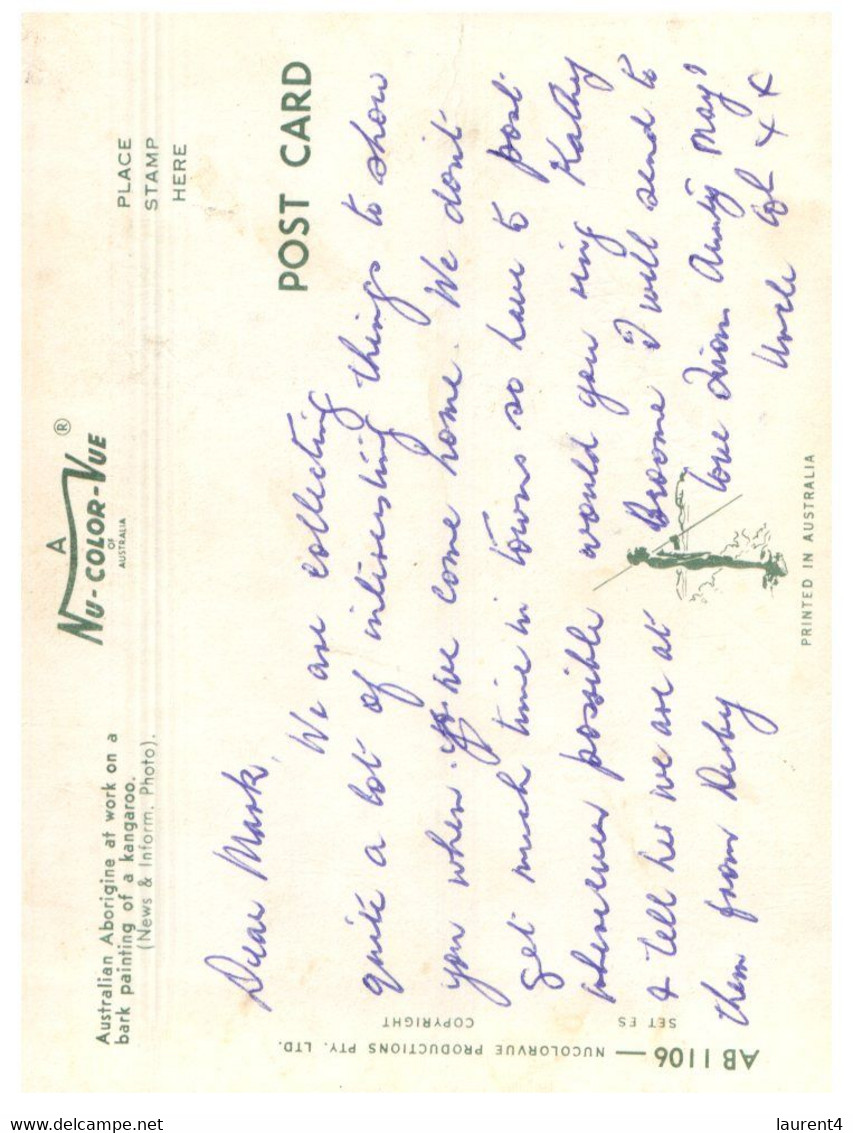 Australian Aborigine at work on a
bark painting of a kangaroo.
(News & Inform. Photo).
A
NU-COLOR-VUE ®
OF
AUSTRALIA
PLACE
STAMP
HERE
POST CARD
Dear Mark,
We are collecting
quite a lot of interesting things to show
you when we come home. We don't
get much time in towns so have to post
wherever possible would you ring Kathy
& tell her we are at Broome I will send to
them from Derby
love from Aunty May &
Uncle Col x x
AB 1106 — NUCOLORVUE PRODUCTIONS PTY. LTD.
SET ES COPYRIGHT
PRINTED IN AUSTRALIA
delcampe.net
laurent4